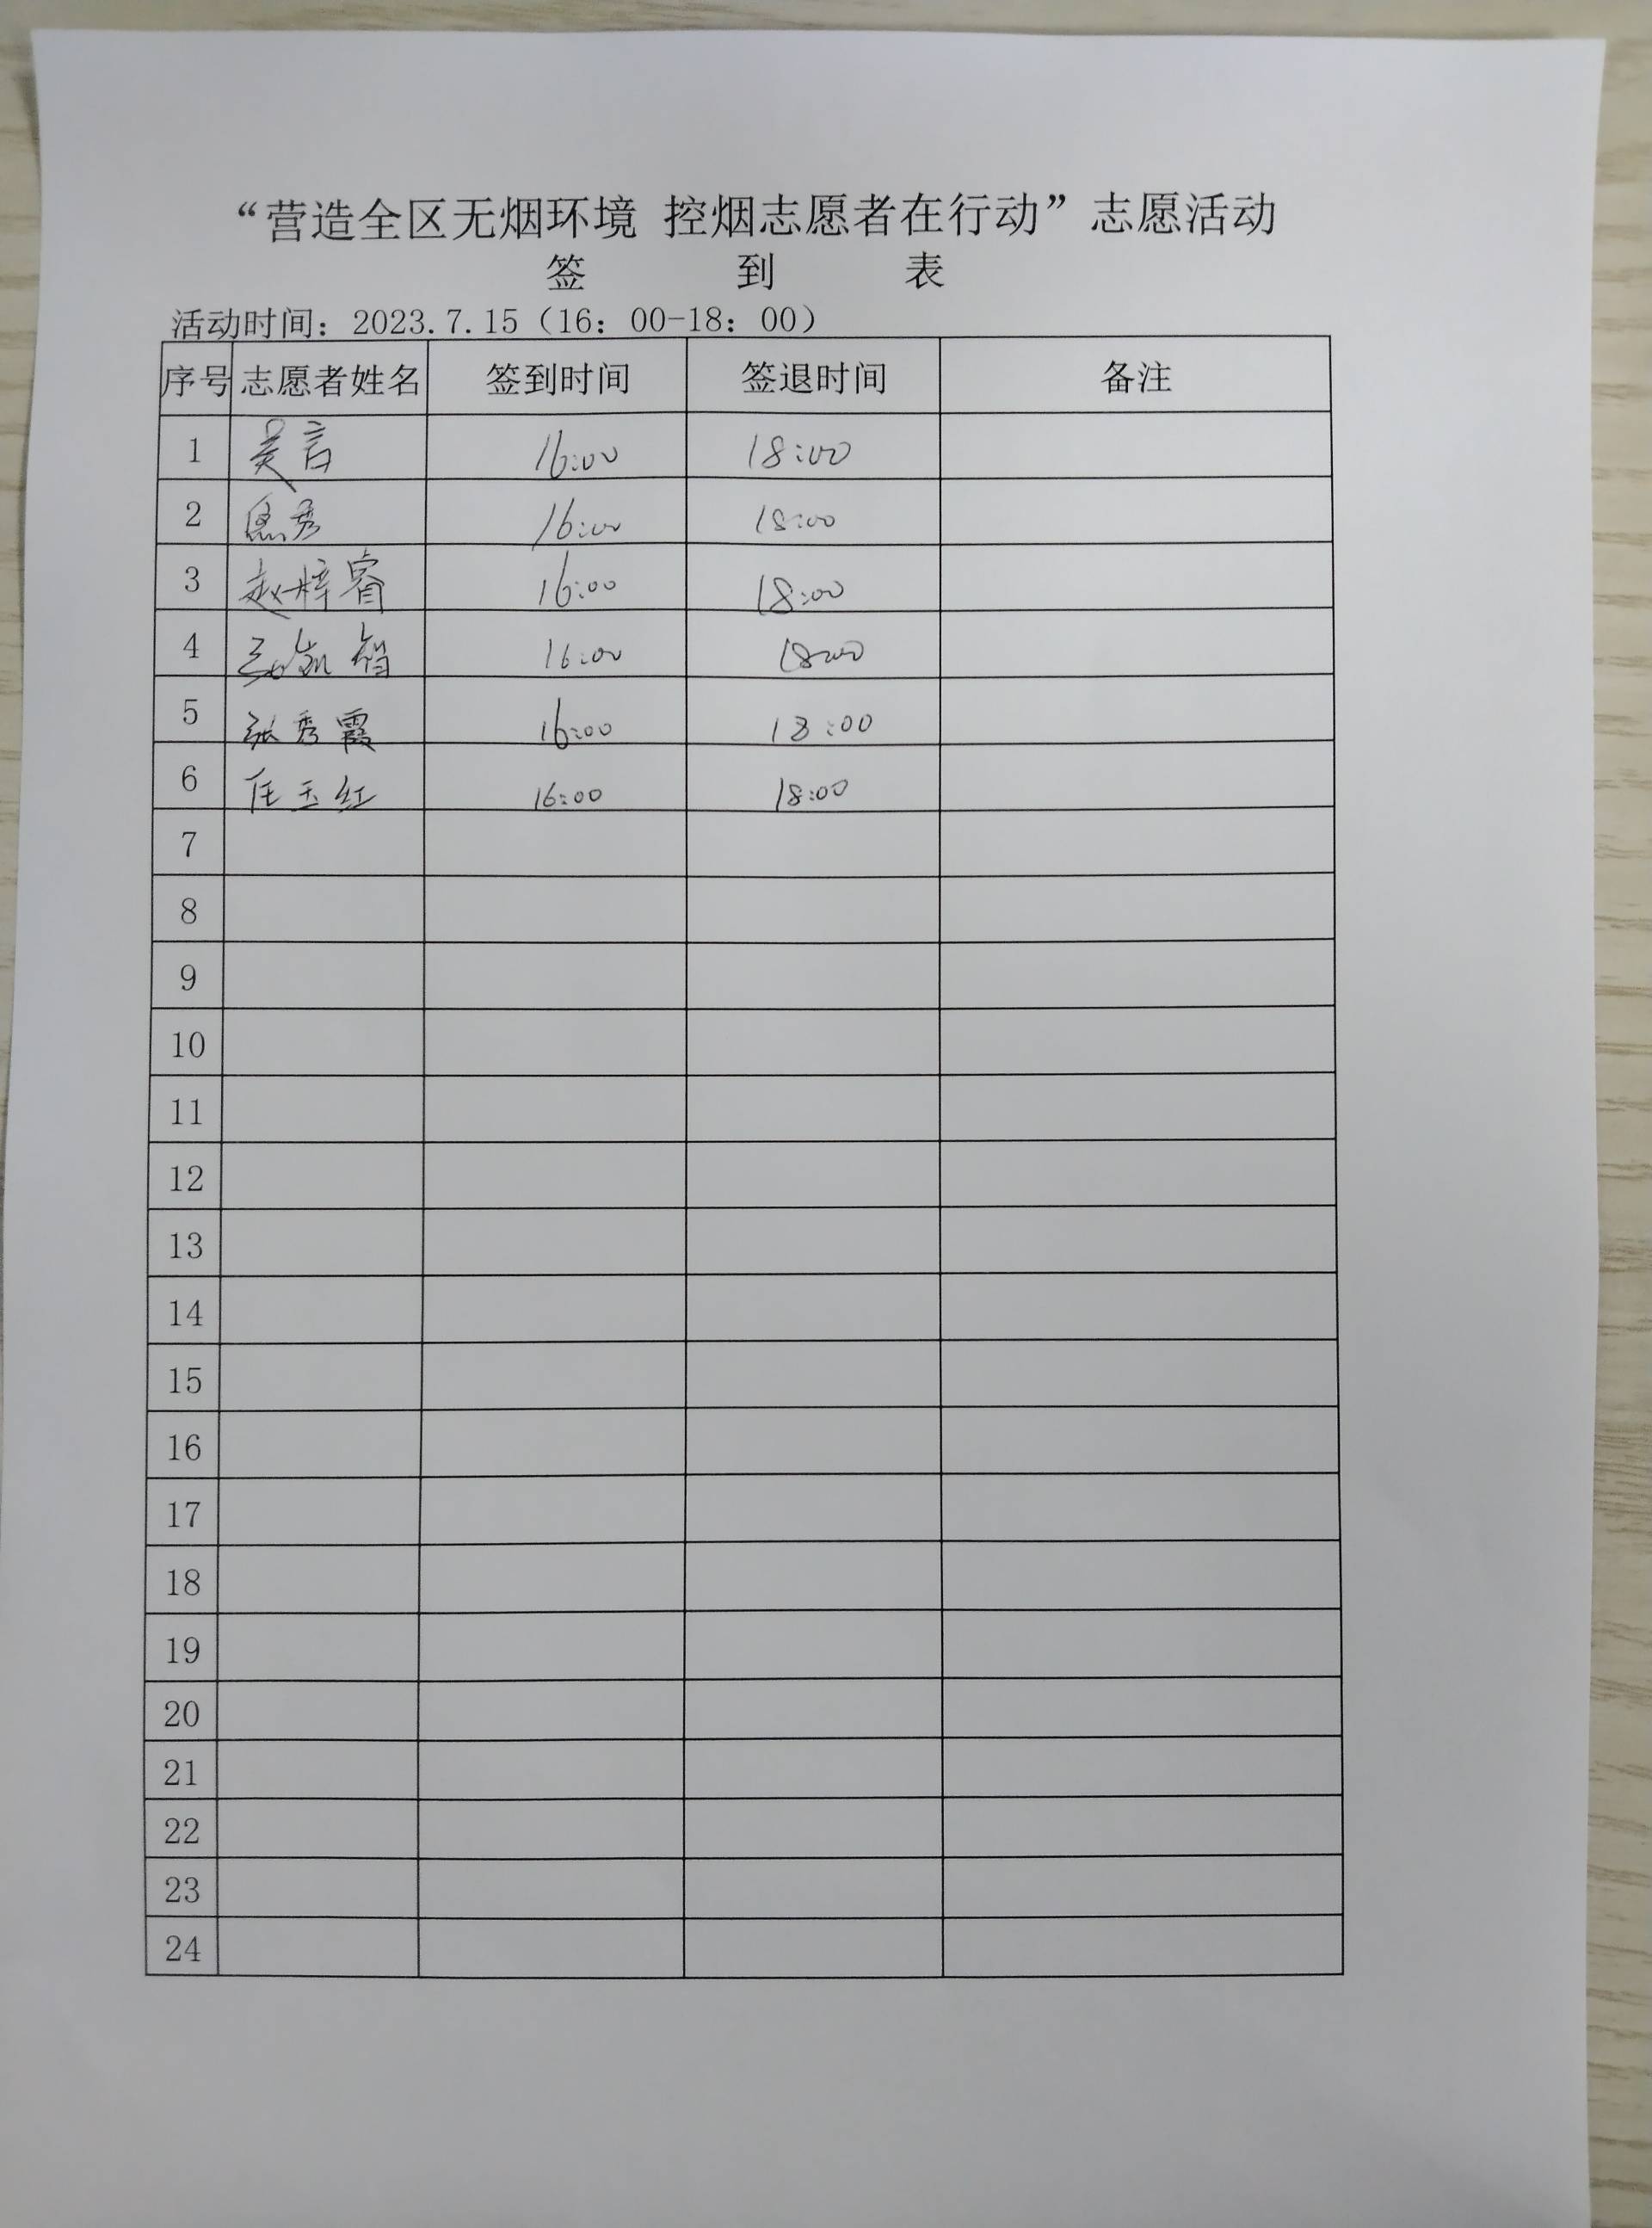 “营造全区无烟环境 控烟志愿者在行动”志愿活动
签 到 表
活动时间：2023.7.15（16：00-18：00）
序号 志愿者姓名 签到时间 签退时间 备注
1 吴言 16:00 18:00
2 16:00 18:00
3 赵梓睿 16:00 18:00
4 16:00 18:00
5 张秀霞 16:00 18:00
6 任玉红 16:00 18:00
7
8
9
10
11
12
13
14
15
16
17
18
19
20
21
22
23
24